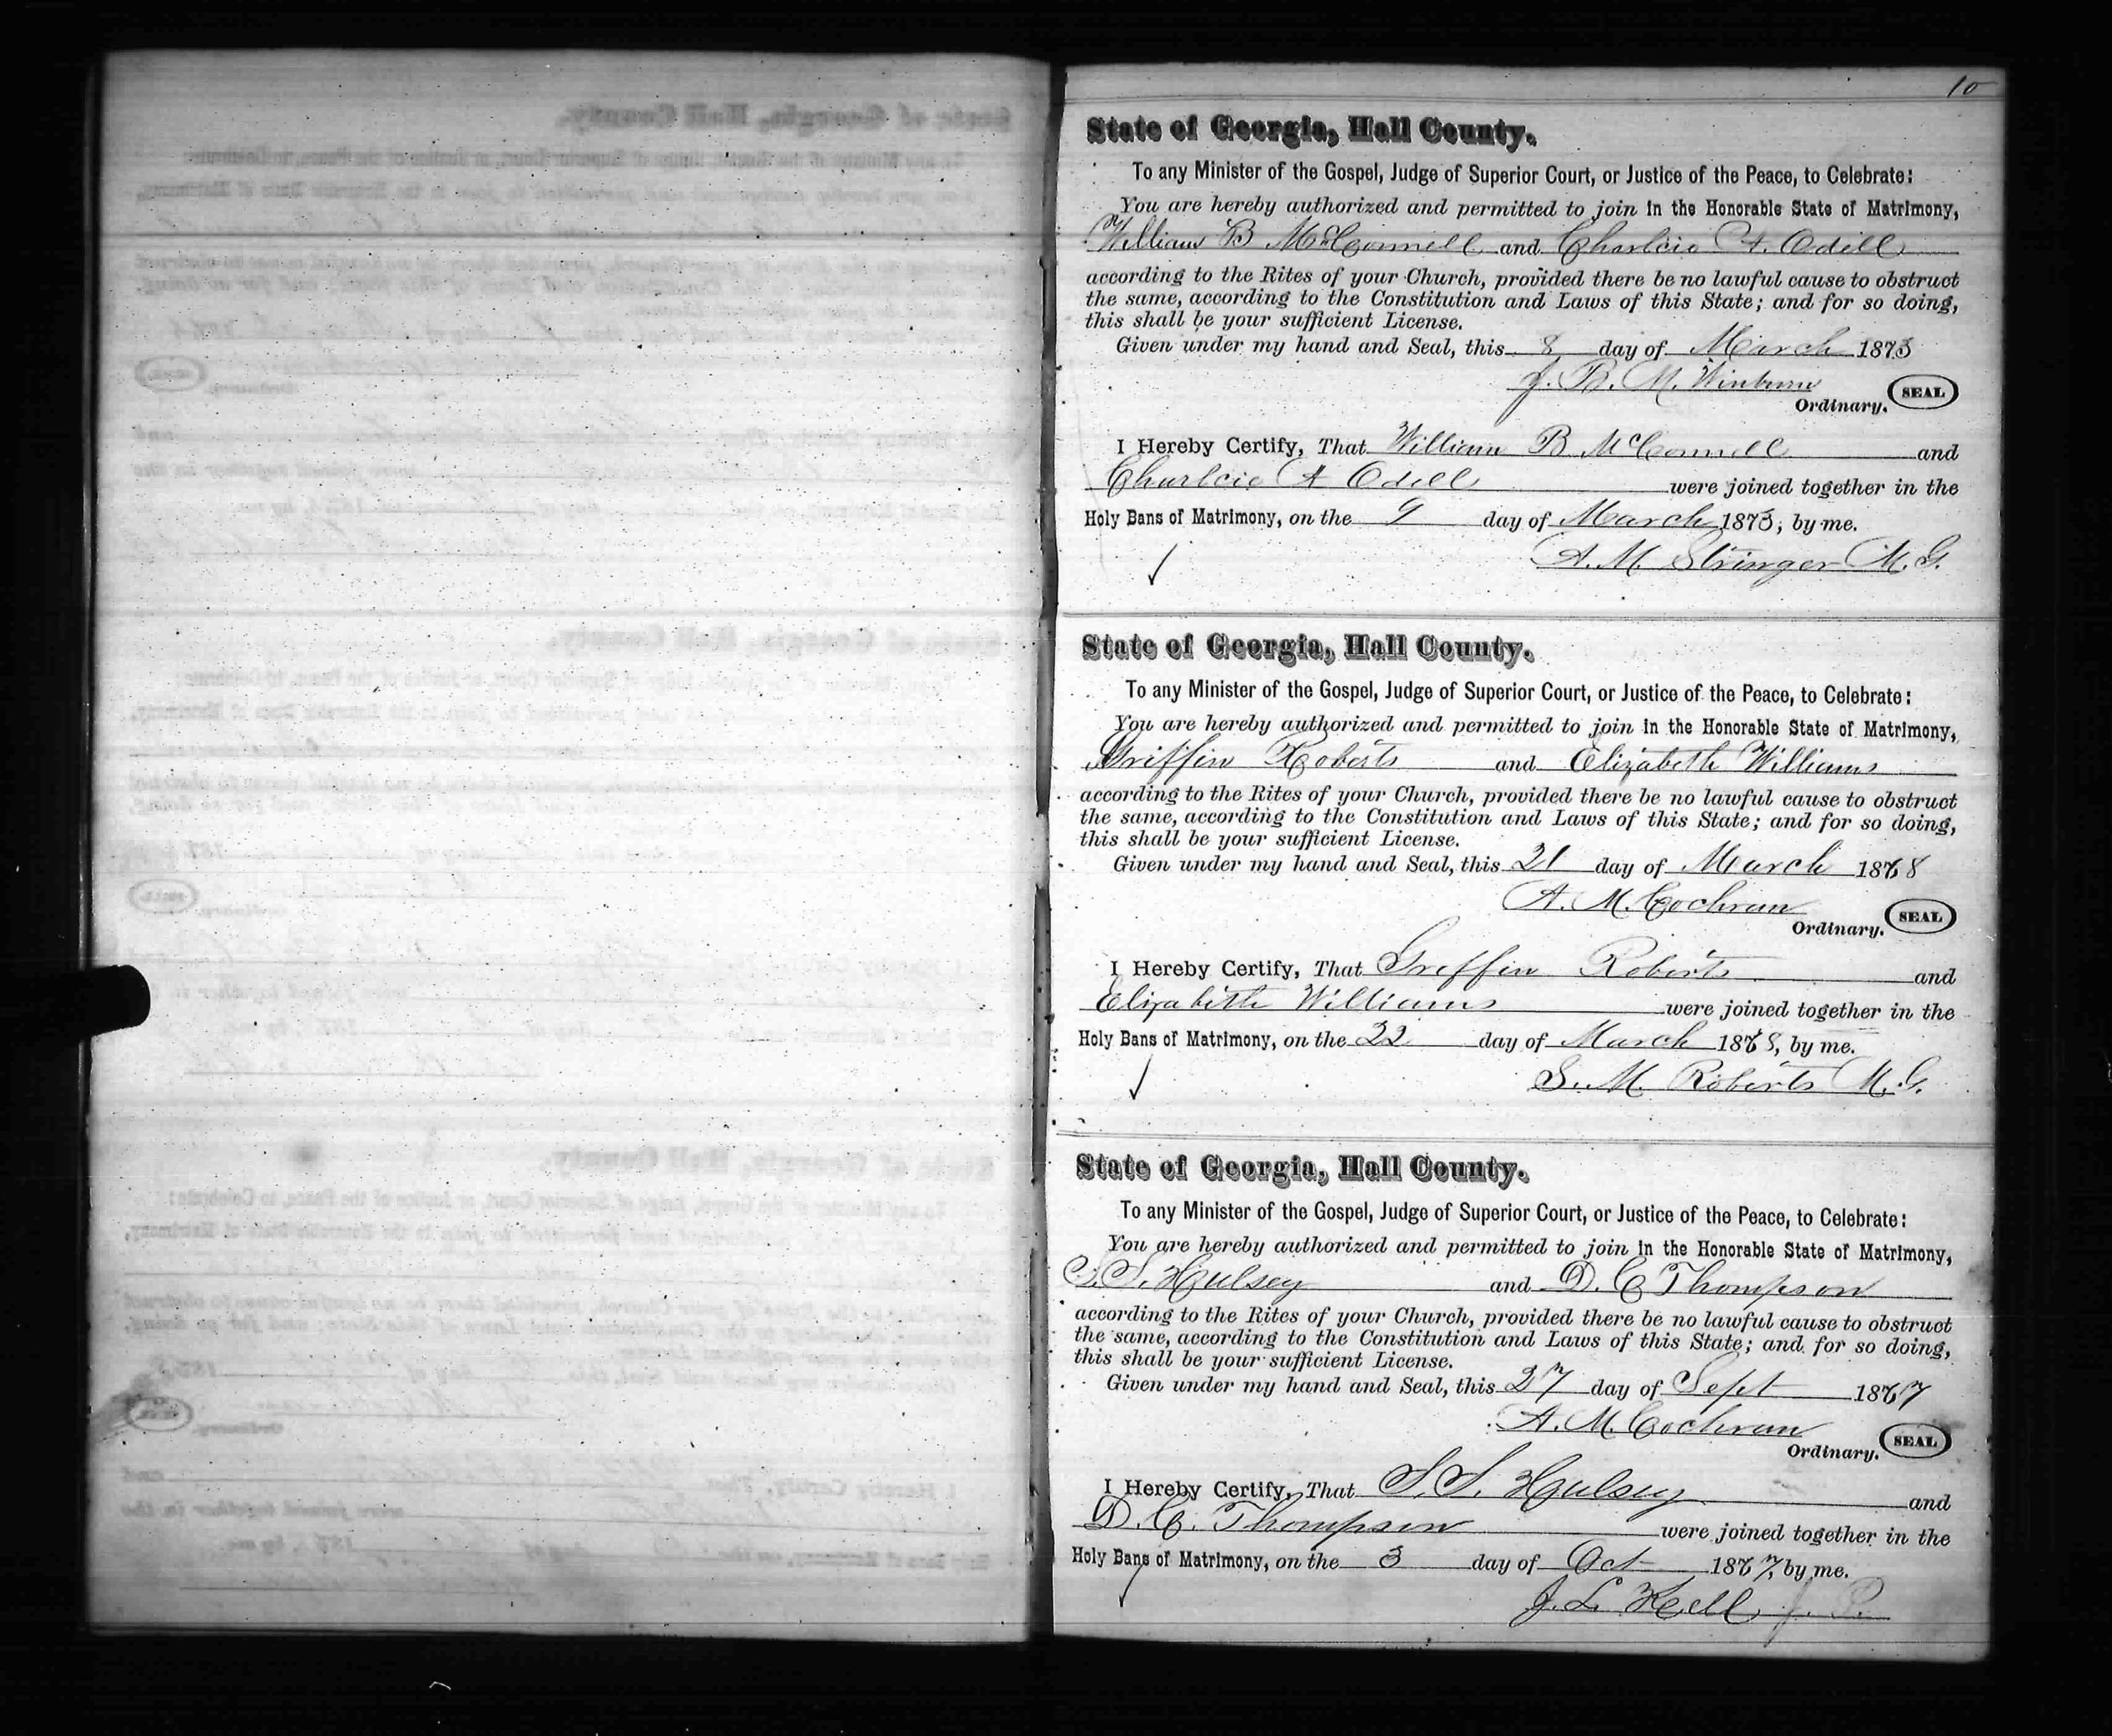 10
State of Georgia, Hall County.
To any Minister of the Gospel, Judge of Superior Court, or Justice of the Peace, to Celebrate:
You are hereby authorized and permitted to join in the Honorable State of Matrimony,
William B McConnell and Charlcie A. Odell
according to the Rites of your Church, provided there be no lawful cause to obstruct
the same, according to the Constitution and Laws of this State; and for so doing,
this shall be your sufficient License.
Given under my hand and Seal, this 8 day of March 1873
J. B. M. Winburn
Ordinary. SEAL
I Hereby Certify, That William B McConnell and
Charlcie A Odell were joined together in the
Holy Bans of Matrimony, on the 9 day of March 1873, by me.
A. M. Stringer M. G.
State of Georgia, Hall County.
To any Minister of the Gospel, Judge of Superior Court, or Justice of the Peace, to Celebrate:
You are hereby authorized and permitted to join in the Honorable State of Matrimony,
Griffin Roberts and Elizabeth Williams
according to the Rites of your Church, provided there be no lawful cause to obstruct
the same, according to the Constitution and Laws of this State; and for so doing,
this shall be your sufficient License.
Given under my hand and Seal, this 21 day of March 1868
A. M. Cochran
Ordinary. SEAL
I Hereby Certify, That Griffin Roberts and
Elizabeth Williams were joined together in the
Holy Bans of Matrimony, on the 22 day of March 1868, by me.
S. M. Roberts M. G.
State of Georgia, Hall County.
To any Minister of the Gospel, Judge of Superior Court, or Justice of the Peace, to Celebrate:
You are hereby authorized and permitted to join in the Honorable State of Matrimony,
S. S. Hulsey and D. C Thompson
according to the Rites of your Church, provided there be no lawful cause to obstruct
the same, according to the Constitution and Laws of this State; and for so doing,
this shall be your sufficient License.
Given under my hand and Seal, this 27 day of Sept 1867
A. M. Cochran
Ordinary. SEAL
I Hereby Certify, That S. S. Hulsey and
D. C. Thompson were joined together in the
Holy Bans of Matrimony, on the 3 day of Oct 1867, by me.
J. L. Kell J. P.